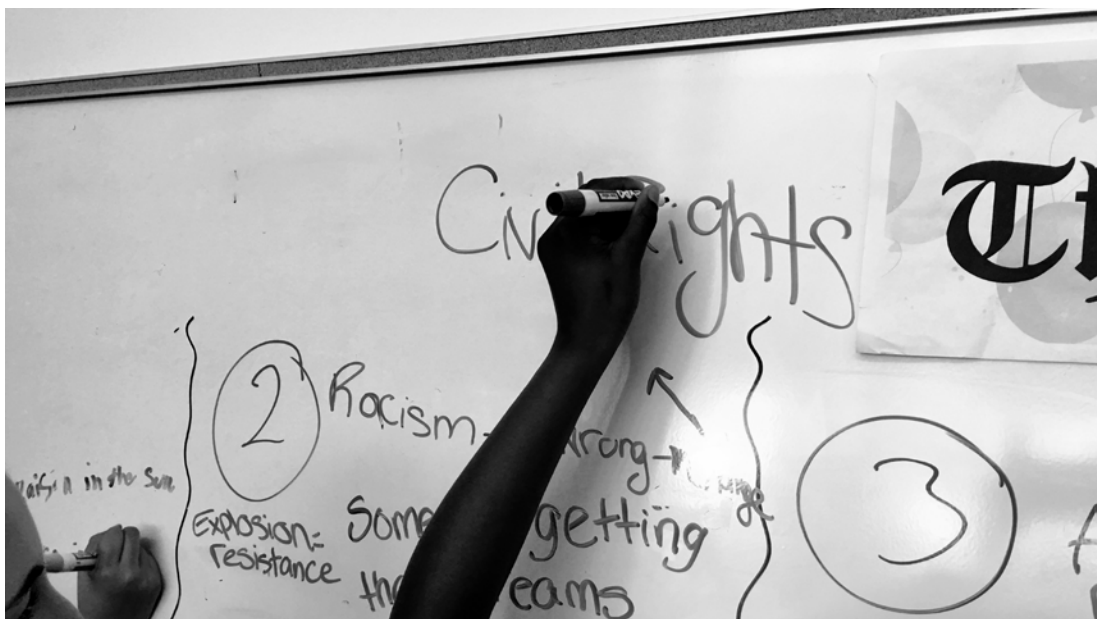 Civil Rights
Raisin in the Sun
2
Racism - wrong → change
Explosion=
resistance
Some getting
eams
3